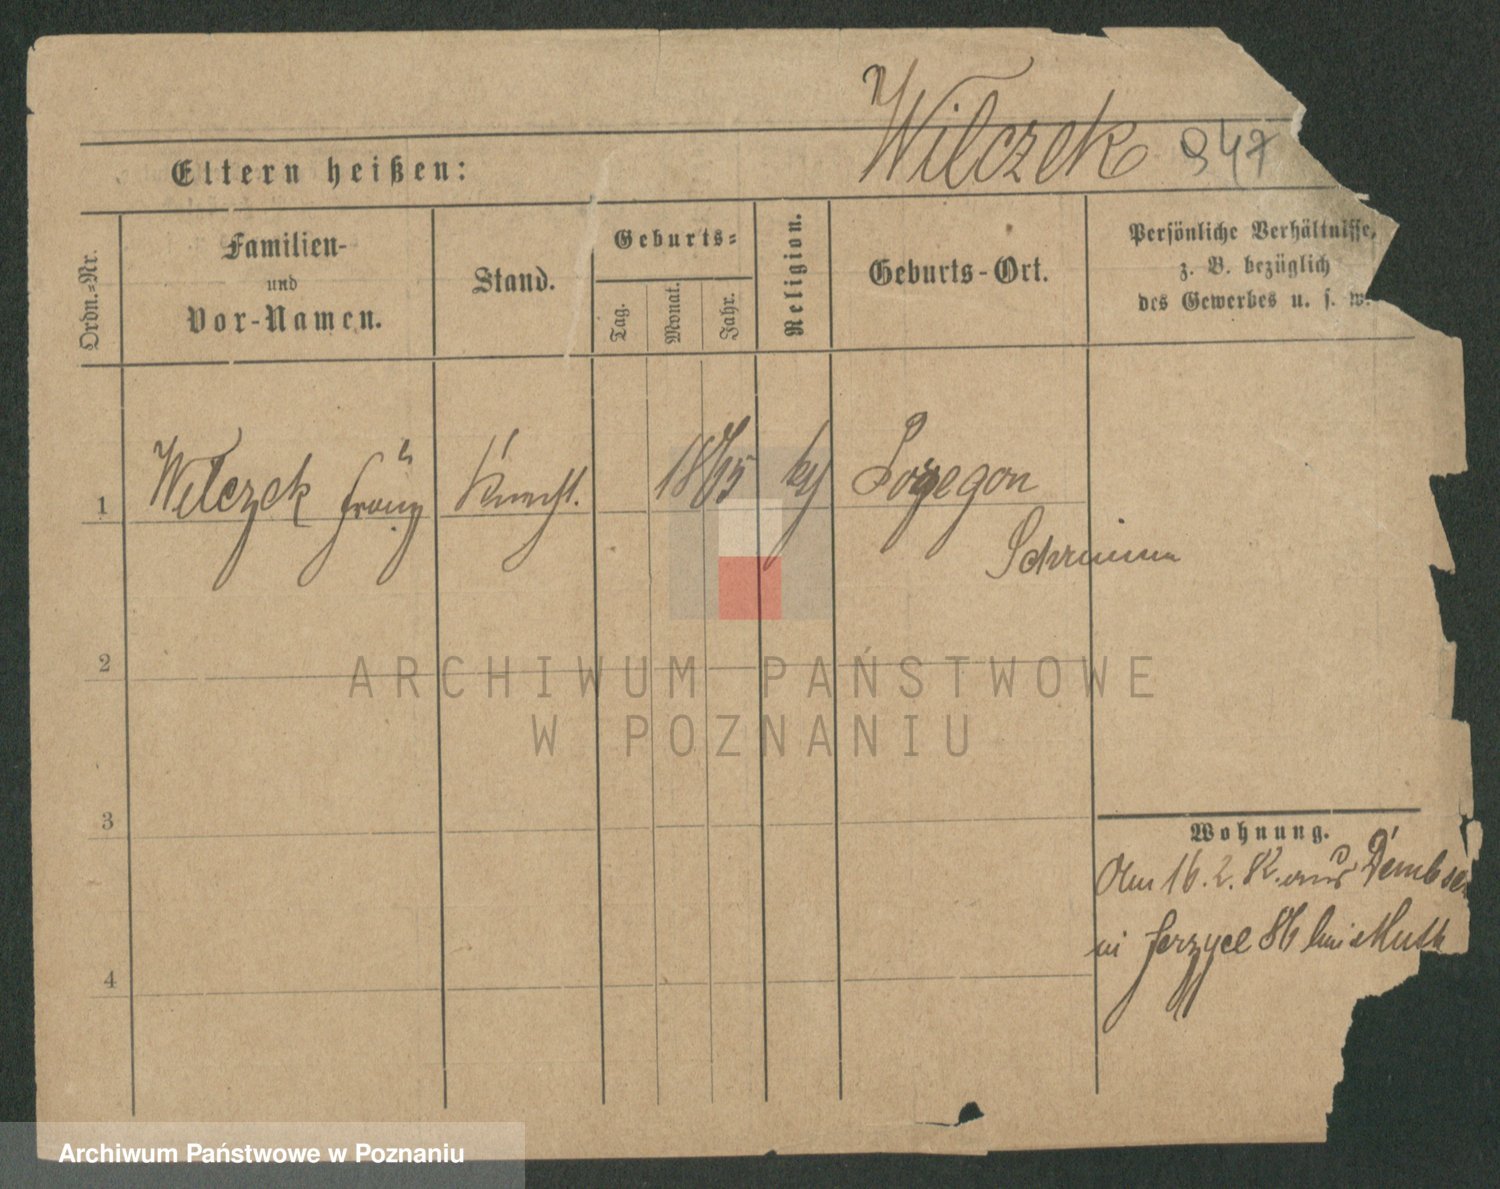 Wilczek 947
Eltern heißen:
Ordn.-Nr.
Familien-
und
Vor-Namen.
Stand.
Geburts-
Tag.
Monat.
Jahr.
Religion.
Geburts-Ort.
Persönliche Verhältnisse,
z. B. bezüglich
des Gewerbes u. s. w.
1 Wilczek Franz Knecht. 1865
Schrimm
2
ARCHIWUM PAŃSTWOWE
W POZNANIU
3
Wohnung.
Am 16. 2. 82. aus
in 86 bei
4
Archiwum Państwowe w Poznaniu